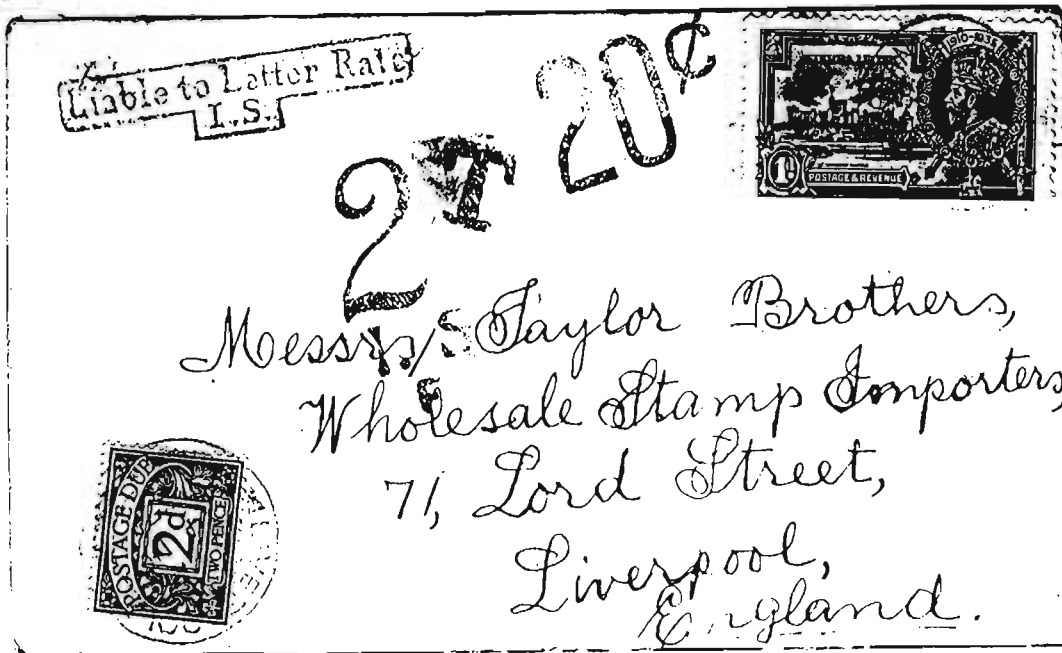 Liable to Latter Rate
I.S.
2
T
20¢
1910-1935
1d
POSTAGE & REVENUE
Messrs/s Taylor Brothers,
Wholesale Stamp Importers,
71, Lord Street,
Liverpool,
England.
POSTAGE DUE
2d
TWO PENCE